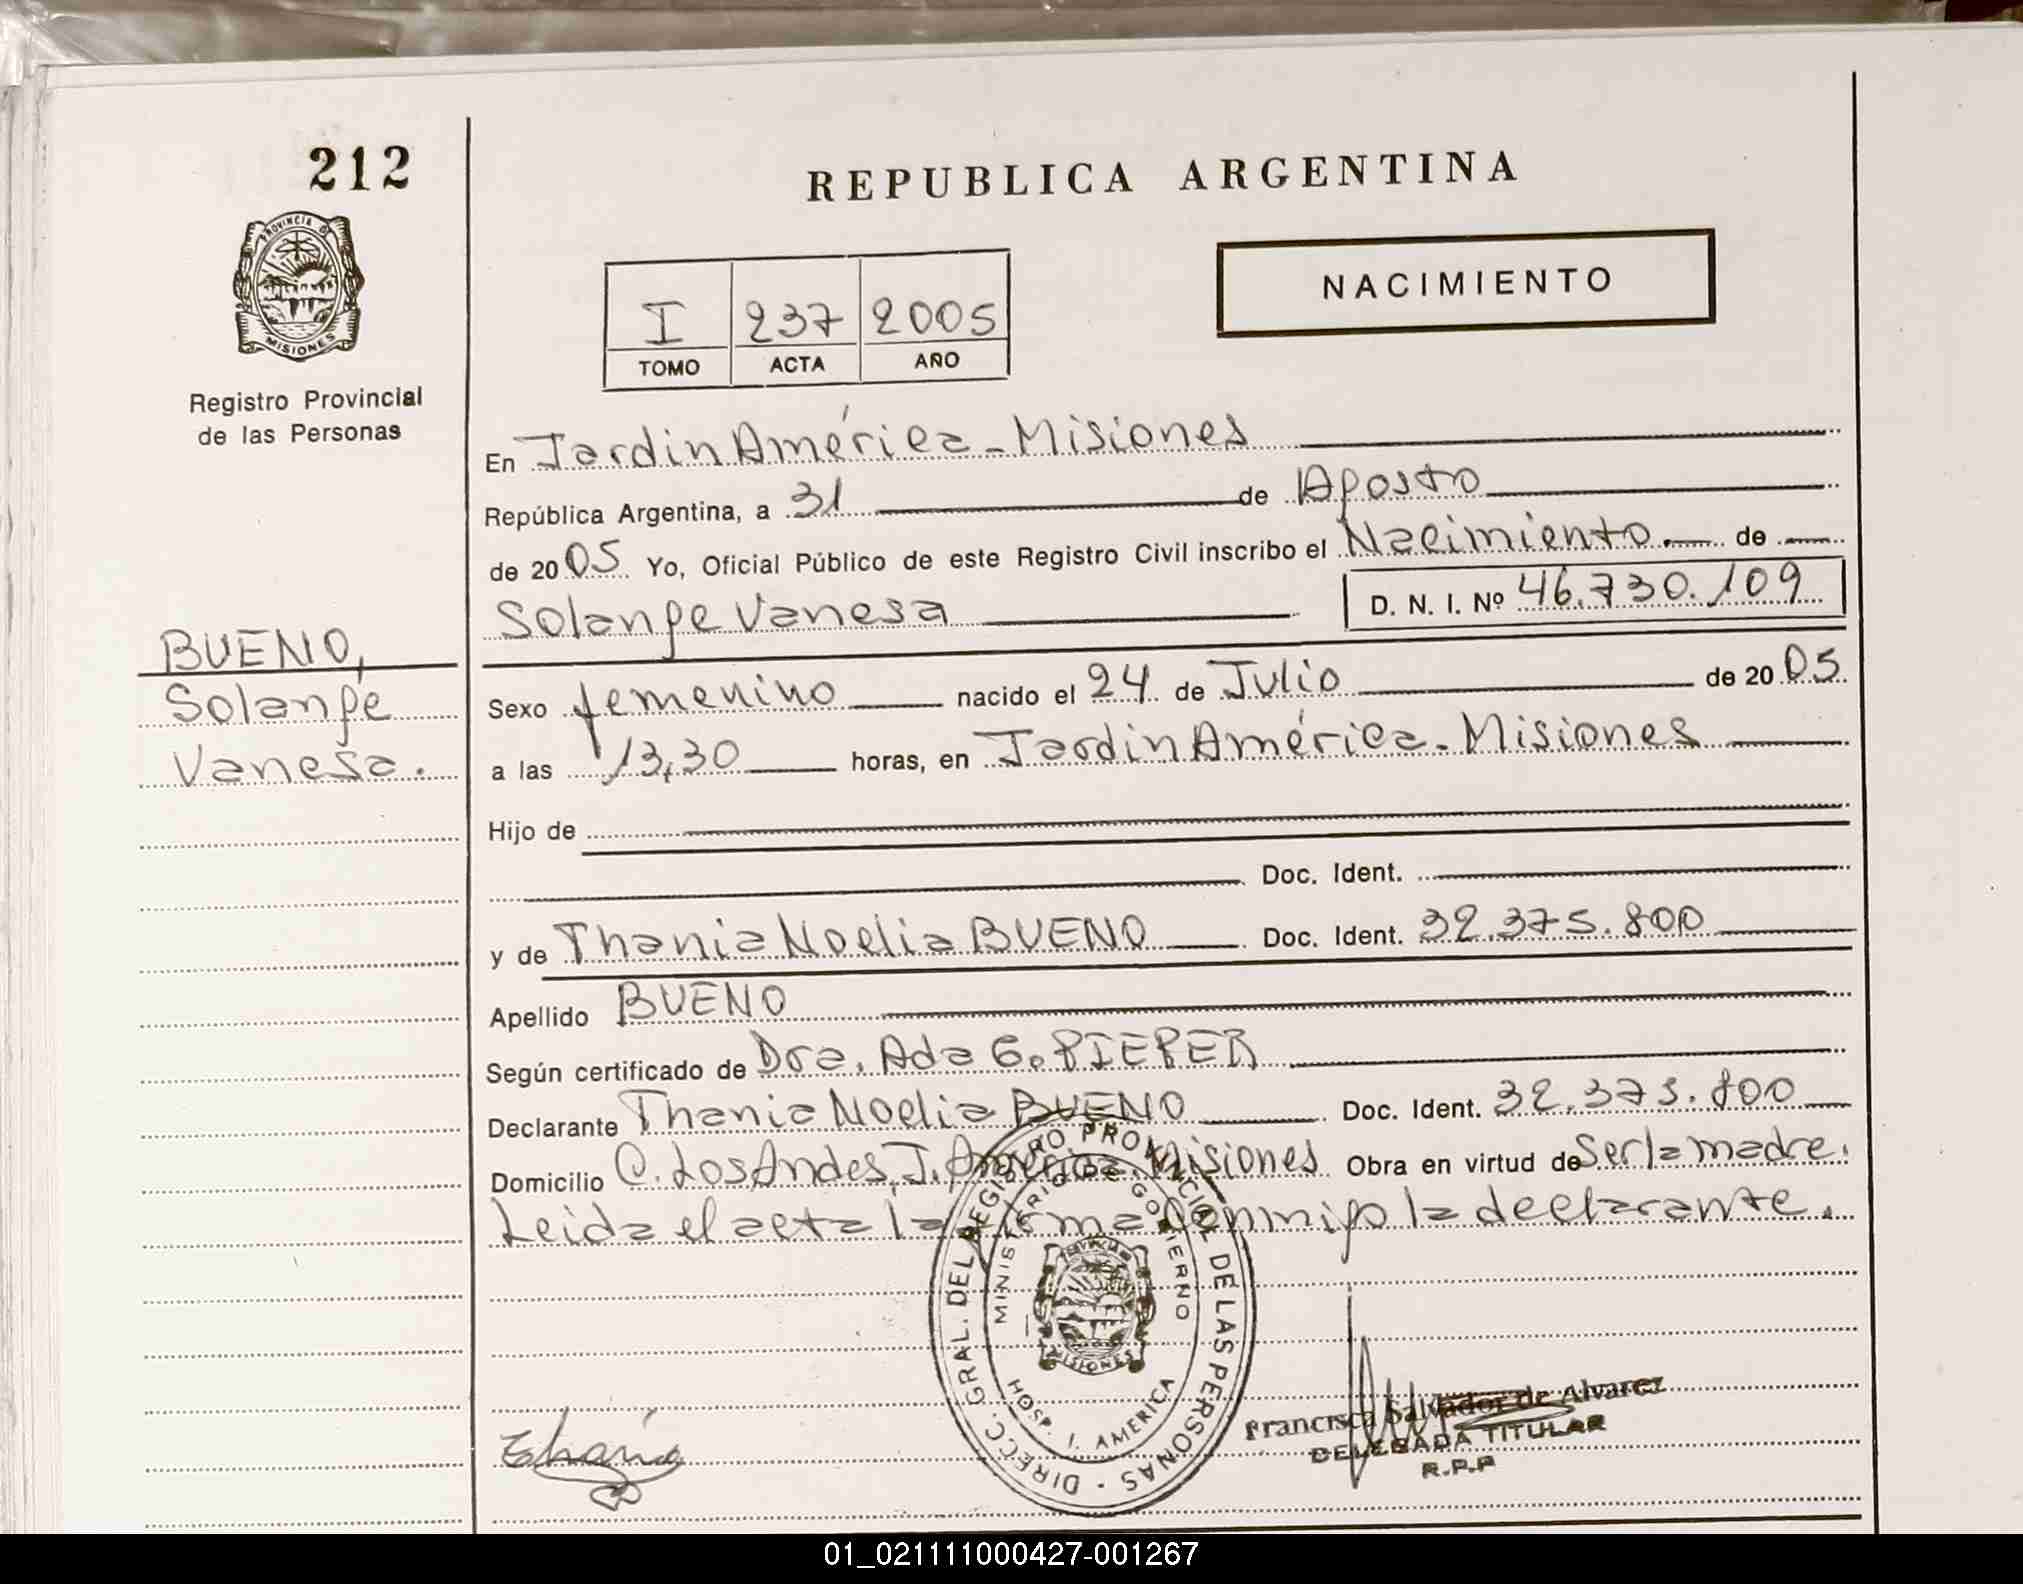 212
PROVINCIA DE
MISIONES
Registro Provincial
de las Personas
BUENO,
Solange
Vanesa.
REPUBLICA ARGENTINA
NACIMIENTO
I 237 2005
TOMO ACTA AÑO
En Jardín América - Misiones
República Argentina, a 31 de Agosto
de 2005 Yo, Oficial Público de este Registro Civil inscribo el Nacimiento. de
Solange Vanesa D. N. I. Nº 46.730.109
Sexo femenino nacido el 24 de Julio de 2005.
a las 13,30 horas, en Jardín América - Misiones
Hijo de
Doc. Ident.
y de Thania Noelia BUENO Doc. Ident. 32.375.800
Apellido BUENO
Según certificado de Dra. Ada G. PIEPER
Declarante Thania Noelia BUENO Doc. Ident. 32.375.800
Domicilio C. Los Andes, J. América Misiones Obra en virtud de Ser la madre.
Leida el acta la firma Conmigo la declarante.
DIRECC. GRAL. DEL REGISTRO PROVINCIAL DE LAS PERSONAS
MINISTERIO GOBIERNO
MISIONES
HOSP. J. AMERICA
Thania
Francisca Salvador de Alvarez
DELEGADA TITULAR
R.P.P
01_021111000427-001267